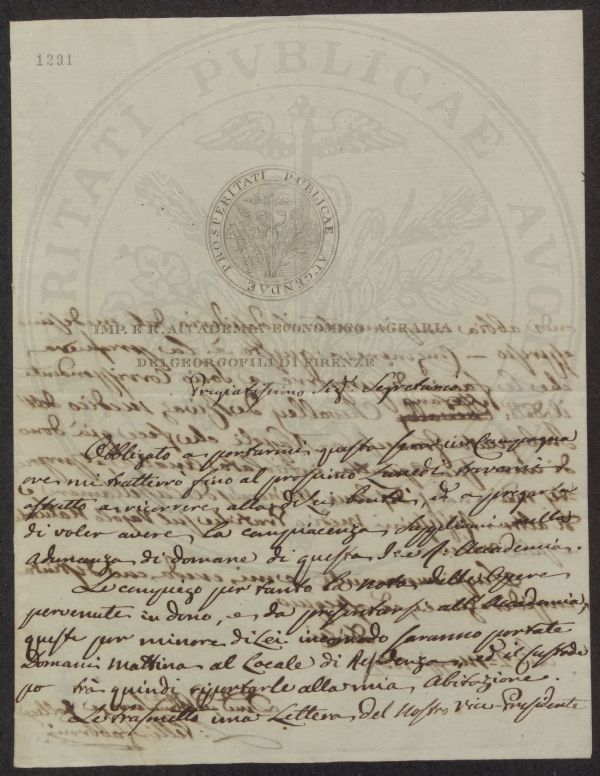 1291
PROSPERITATI PUBLICAE AUGENDAE
IMP. E R. ACCADEMIA ECONOMICO AGRARIA
DEI GEORGOFILI DI FIRENZE
Pregiatissimo Sig.r Segretario
Obbligato a portarmi questa sera in Campagna
ove mi tratterrò fino al prossimo Lunedì trovomi
astretto a ricorrere alla di Lei bontà, ed a pregarla
di voler avere la compiacenza supplirmi nella
adunanza di domane di questa I. e R. Accademia.
Le consegno per tanto la nota delle Opere
pervenute in dono, e da presentarsi all'Accademia,
queste per minore di Lei incomodo saranno portate
Domani Mattina al Locale di Residenza, ed il Custode
potrà quindi riportarle alla mia Abitazione.
Le trasmetto una Lettera del Nostro Vice-Presidente